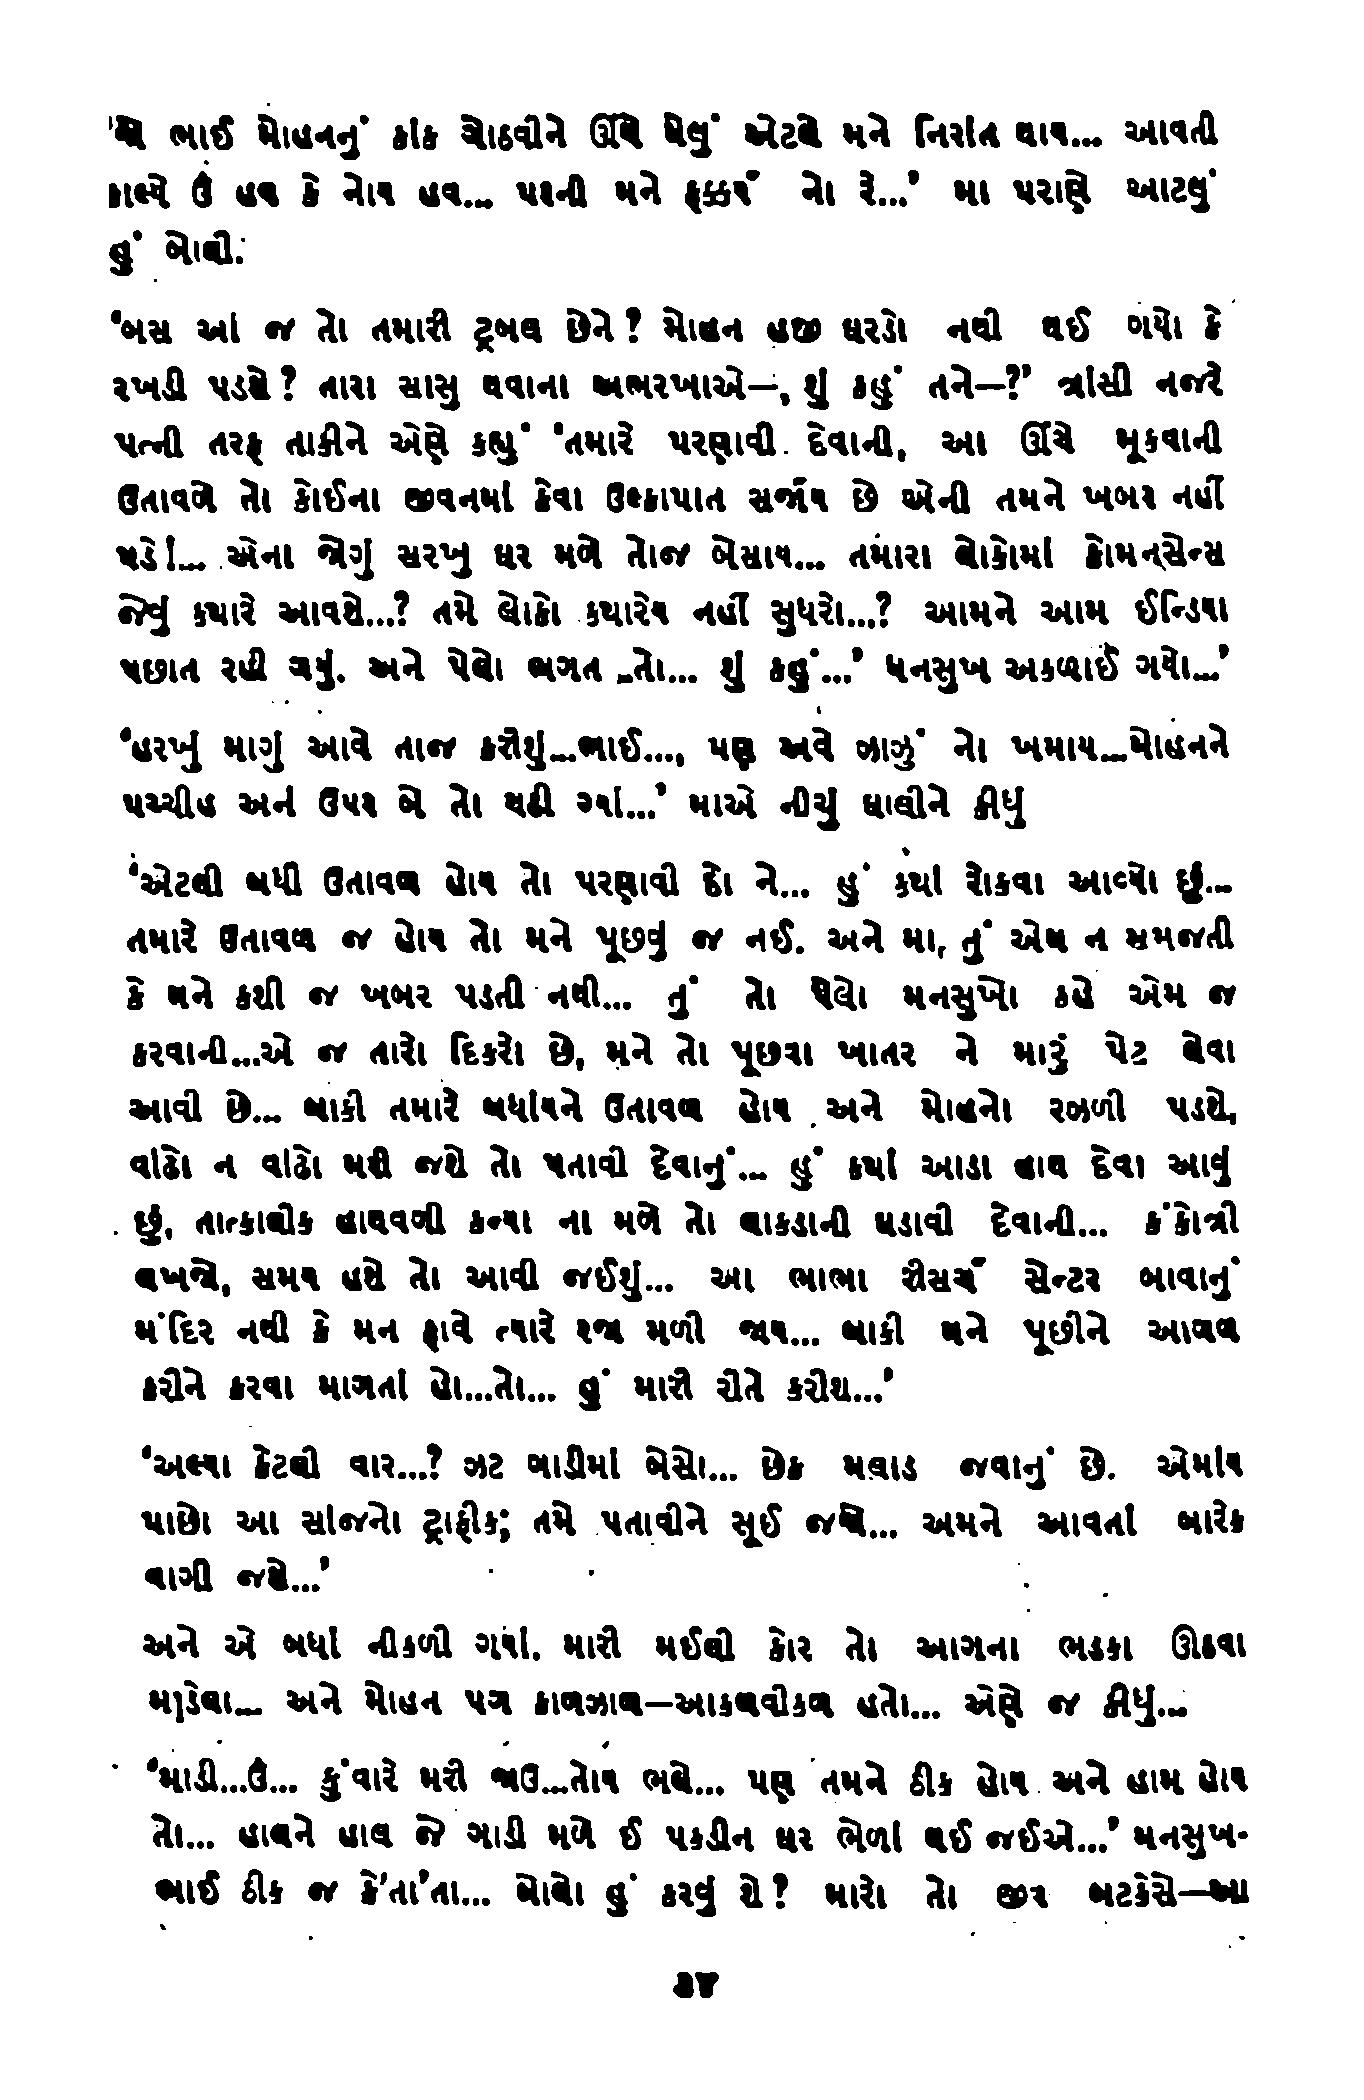 ભાઈ મોહનનું કાંક ચોઠવીને ઊંચે મેલું એટલે મને નિરાંત થાય... આવતી
કાલ્યે ઉં હવ કે નોય હવ... પછની મને ફક્કર્ય નો રે...’ મા પરાણે આટલું
હું બોલી.
‘બસ આં જ તો તમારી ટ્રબલ છેને ? મોહન હજી ઘરડો નથી થઈ ગયો કે
રખડી પડશે ? તારા સાસુ થવાના અભરખાએ—, શું કહું તને—?’ ત્રાંસી નજરે
પત્ની તરફ તાકીને એણે કહ્યું ‘તમારે પરણાવી દેવાની, આ ઊંચે મૂકવાની
ઉતાવળે તો કોઈના જીવનમાં કેવા ઉલ્કાપાત સર્જાય છે એની તમને ખબર નહીં
પડે !... એના જોગું સરખુ ઘર મળે તોજ બેસાય... તમારા લોકોમાં કોમનસેન્સ
જેવું કયારે આવશે...? તમે લોકો કયારેય નહીં સુધરો...? આમને આમ ઈન્ડિયા
પછાત રહી ગયું. અને પેલો ભગત તો... શું કહું...’ ધનસુખ અકળાઈ ગયો...’
‘હરખું માગું આવે તાજ કરીશું...ભાઈ..., પણ અવે ઝાઝું નો ખમાય...મોહનને
પચ્ચીહ અનં ઉપર બે તો થઈ ગ્યાં...’ માએ નીચું ઘાલીને કીધું
‘એટલી બધી ઉતાવળ હોય તો પરણાવી દો ને... હું કયાં રોકવા આવ્યો છું...
તમારે ઉતાવળ જ હોય તો મને પૂછવું જ નઈ. અને મા, તું એમ ન સમજતી
કે મને કશી જ ખબર પડતી નથી... તું તો પેલો મનસુખો કહે એમ જ
કરવાની...એ જ તારો દિકરો છે, મને તો પૂછવા ખાતર ને મારું પેટ લેવા
આવી છે... બાકી તમારે બધાંયને ઉતાવળ હોય અને મોહનો રઝળી પડશે,
વાંઢો ન વાંઢો મરી જશે તો પતાવી દેવાનું... હું કયાં આડા હાથ દેવા આવું
છું, તાત્કાલીક હાથવગી કન્યા ના મળે તો લાકડાની ઘડાવી દેવાની... કંકોત્રી
લખજો, સમય હશે તો આવી જઈશું... આ ભાભા રીસર્ચ સેન્ટર બાવાનું
મંદિર નથી કે મન ફાવે ત્યારે રજા મળી જાય... બાકી મને પૂછીને આગળ
કરીને કરવા માગતાં હો...તો... હું મારી રીતે કરીશ...’
‘અલ્યા કેટલી વાર...? ઝટ ગાડીમાં બેસો... છેક મલાડ જવાનું છે. એમાંય
પાછો આ સાંજનો ટ્રાફીક; તમે પતાવીને સૂઈ જજો... અમને આવતાં બારેક
વાગી જશે...’
અને એ બધાં નીકળી ગયાં. મારી મઈલી કોર તો આગના ભડકા ઊઠવા
માંડેલા... અને મોહન પગ કાળઝાળ—આકળવીકળ હતો... એણે જ કીધું...
‘માડી...ઉં... કુંવારે મરી જાઉ...તોય ભલે... પણ તમને ઠીક હોય અને હામ હોય
તો... હાલને હાલ જે ગાડી મળે ઈ પકડીન ઘર ભેળાં થઈ જઈએ...’ મનસુખ-
ભાઈ ઠીક જ કે'તા'તા... બોલો હું કરવું શે ? મારો તો જીર બટકેસે—આ
૩૪